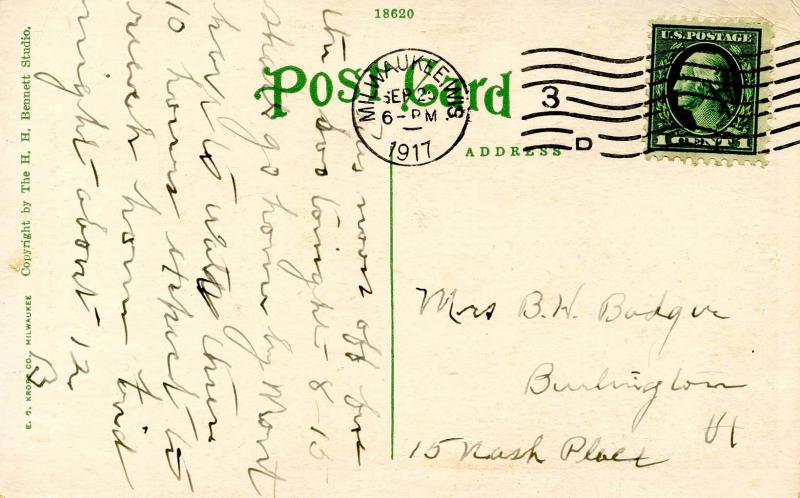 18620
Post Card
MILWAUKEE, WIS
SEP 29
6-PM
1917
3
D
U.S. POSTAGE
1 CENT 1
ADDRESS
noon off
the Soo tonight 8-15
go home by Mont
have to wait three
10 hours expect to
reach home
night about 12
B
Mrs B.H. Badger
Burlington
Vt
15 Nash Place
Copyright by The H. H. Bennett Studio.
E. C. KROPP CO., MILWAUKEE